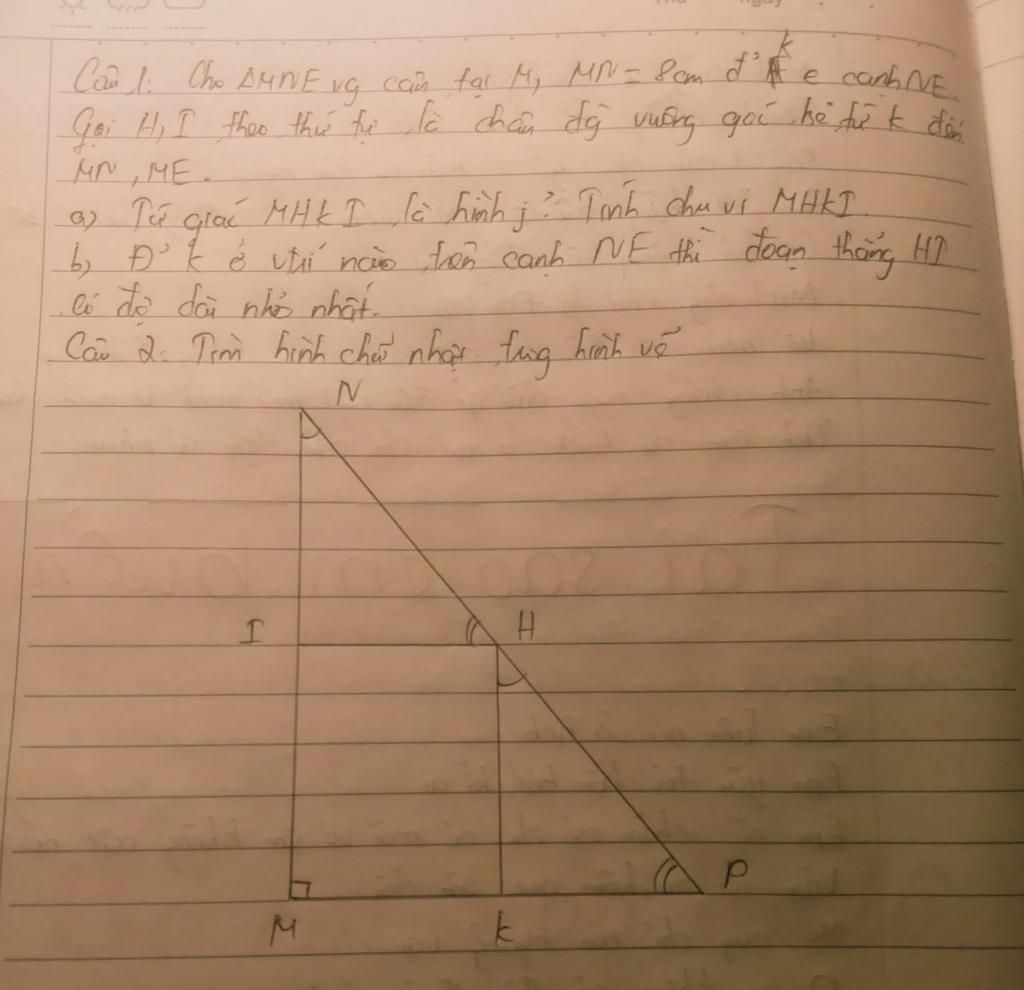 Câu 1. Cho ΔMNE vg cân tại M, MN = 8cm đ' k e cạnh NE.
Gọi H, I theo thứ tự là chân đg vuông góc kẻ từ k đến
MN, ME.
a) Tứ giác MHkI là hình j? Tính chu vi MHkI.
b) Đ' k ở vtrí nào trên cạnh NE thì đoạn thẳng HI
có độ dài nhỏ nhất.
Câu 2. Tìm hình chữ nhật trog hình vẽ
N
I H
P
M k